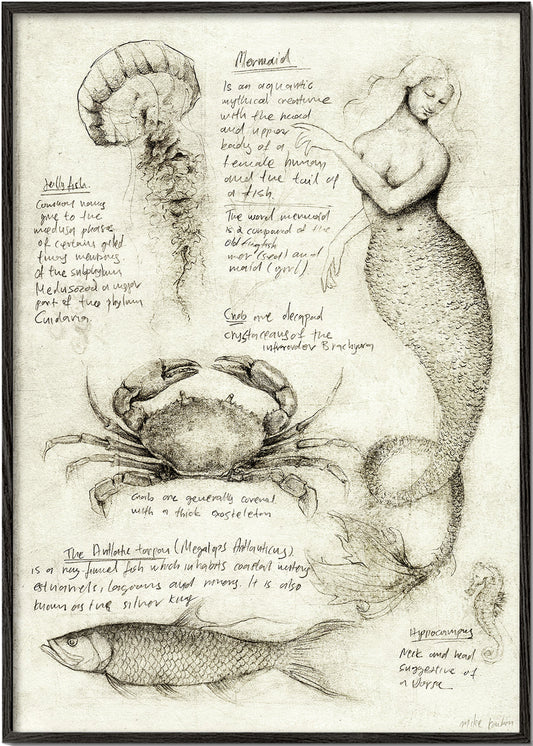 Mermaid
Is an aquantic
mythical creature
with the head
and upper
body of a
female human
and the tail of
a fish.
The word mermaid
is a compound of the
old english
mer (sea) and
maid (girl).
Jellyfish.
Common name
give to the
medusa phase
of certain gelad
living members
of the subphylum
Medusozoa a major
part of the phylum
Cnidaria.
Crab are decapod
crystaceans of the
infraorder Brachyura
Crab are generally covered
with a thick exosteleton
The Atllatic tarpon (Megalops Atllanticus)
is a ray-finned fish which inhabits coastal waters,
estuaries, lagoons and rivers. It is also
known as the silver king
Hippocampus
Neck and head
suggestive of
a horse
mike